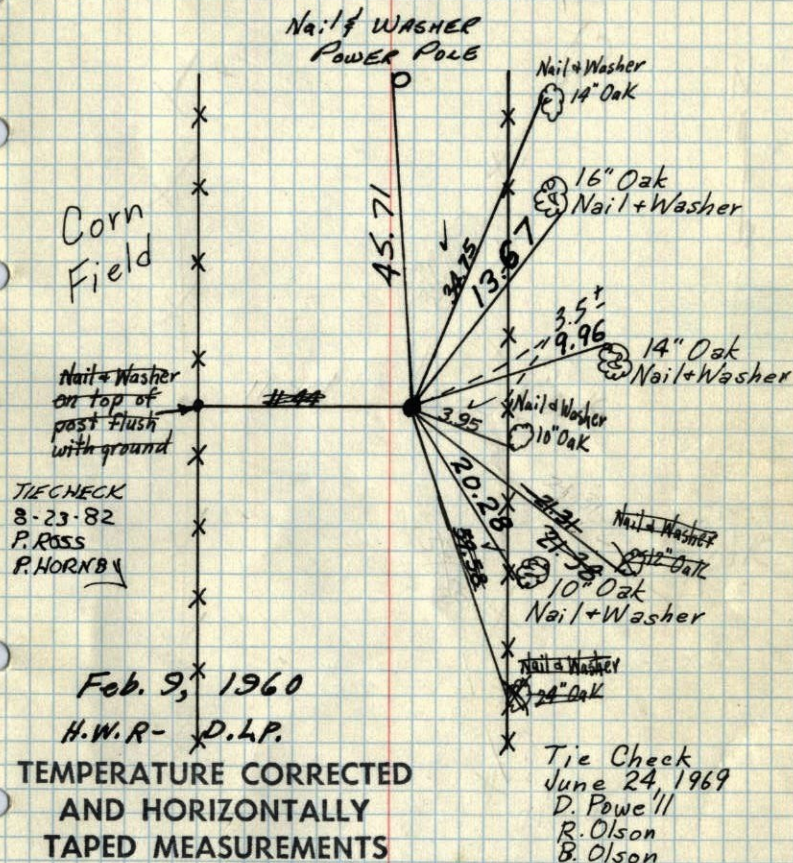 Nail & WASHER
POWER POLE
Nail & Washer
14" Oak
16" Oak
Nail + Washer
Corn
Field
45.71
34.75
13.67
3.5±
9.96
14" Oak
Nail + Washer
Nail & Washer
on top of
post flush
with ground
3.95
Nail & Washer
10" Oak
TIE CHECK
8-23-82
P. ROSS
P. HORNBY
20.28
21.31
21.38
Nail & Washer
12" Oak
10" Oak
Nail + Washer
Nail & Washer
24" Oak
Feb. 9, 1960
H.W.R - D.L.P.
TEMPERATURE CORRECTED
AND HORIZONTALLY
TAPED MEASUREMENTS
Tie Check
June 24, 1969
D. Powell
R. Olson
B. Olson